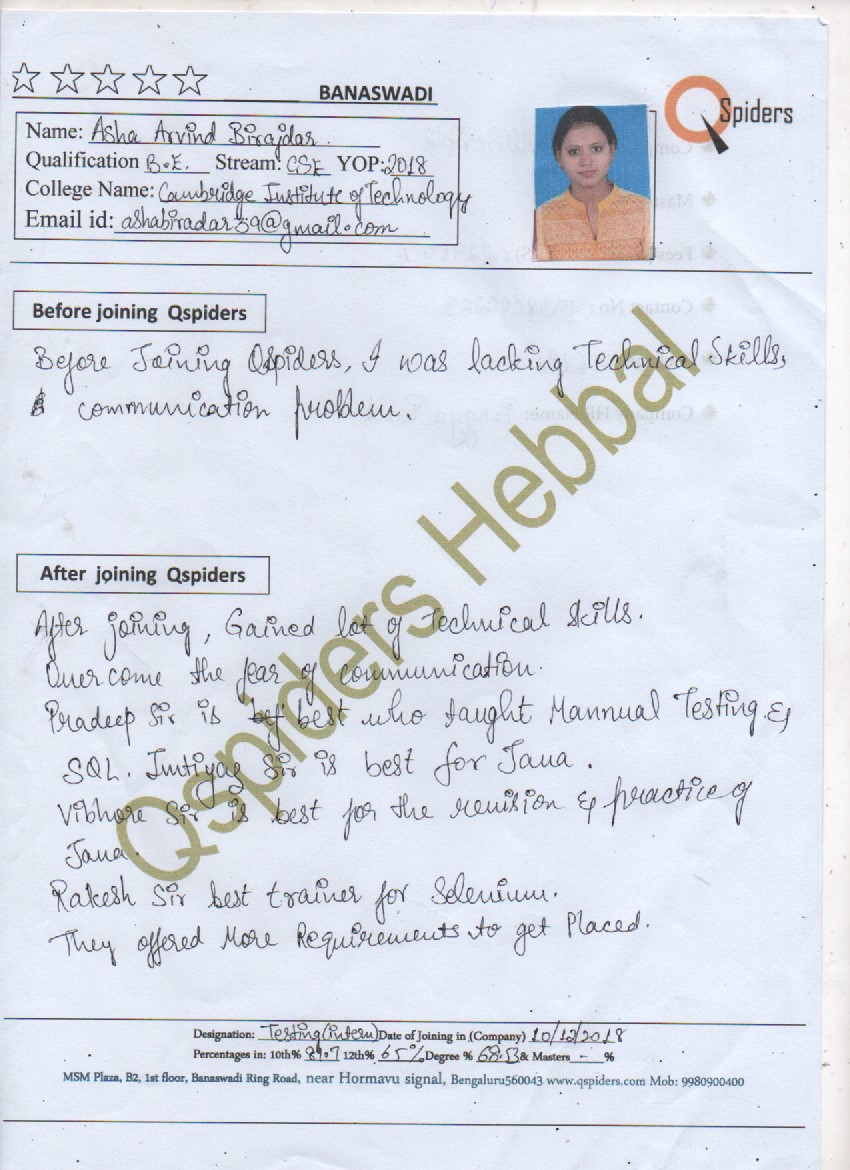 BANASWADI
Spiders
Name: Asha Arvind Birajdar
Qualification B.E. Stream: CSE YOP: 2018
College Name: Cambridge Institute of Technology
Email id: ashabiradar39@gmail.com
Before joining Qspiders
Before Joining Qspiders, I was lacking Technical Skills,
communication problem.
Qspiders Hebbal
After joining Qspiders
After joining, Gained lot of Technical Skills.
Overcome the fear of communication.
Pradeep Sir is best who taught Mannual Testing &
SQL. Imtiyaz Sir is best for Java.
Vibhore Sir is best for the revision & practice of
Java.
Rakesh Sir best trainer for Selenium.
They offered More Requirements to get Placed.
Designation: Testing(intern) Date of Joining in (Company) 10/12/2018
Percentages in: 10th% 12th% 65% Degree % & Masters - %
MSM Plaza, B2, 1st floor, Banaswadi Ring Road, near Hormavu signal, Bengaluru560043 www.qspiders.com Mob: 9980900400